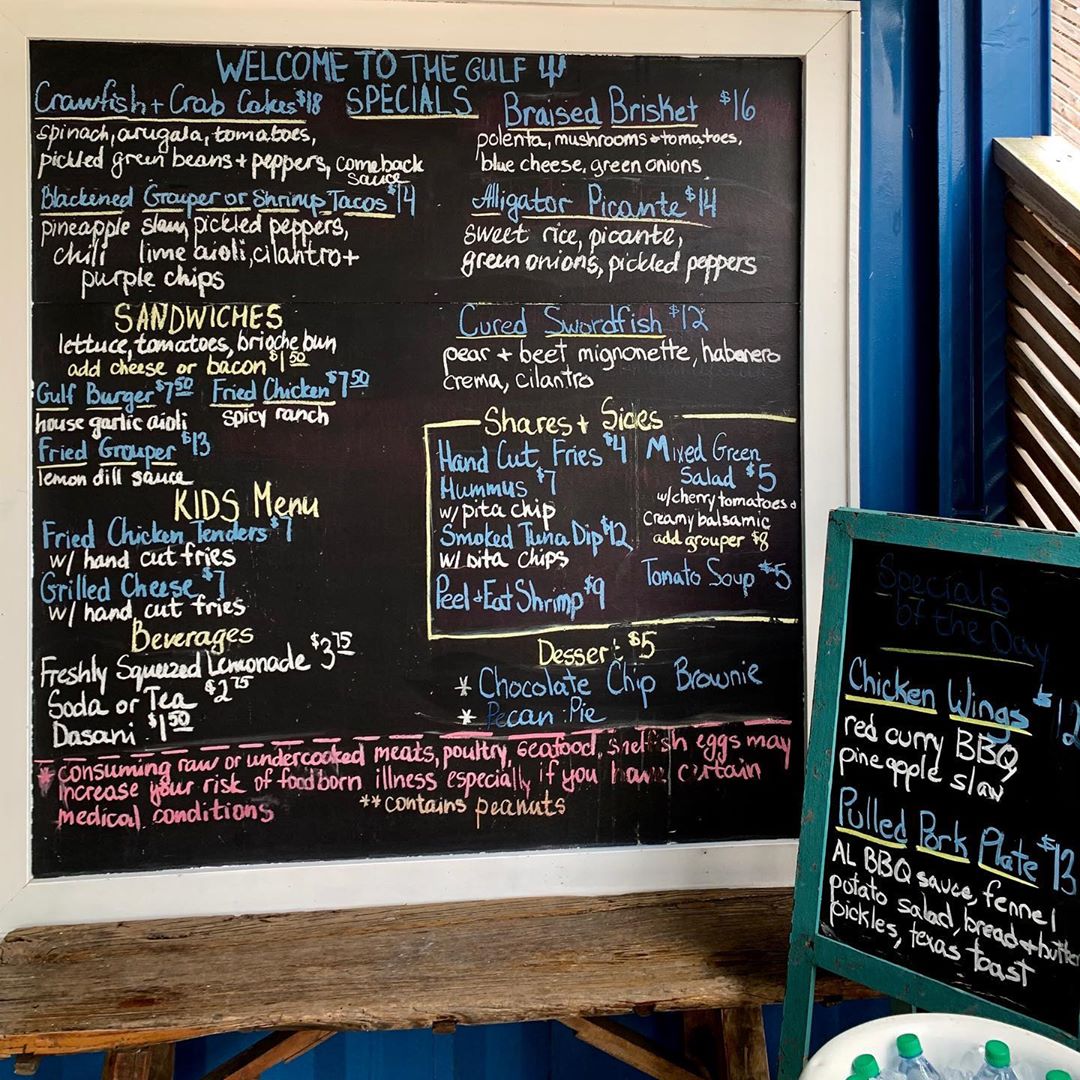 WELCOME TO THE GULF
SPECIALS
Crawfish + Crab Cakes $18
spinach, arugala, tomatoes,
pickled green beans + peppers, comeback
sauce
Blackened Grouper or Shrimp Tacos $14
pineapple slaw, pickled peppers,
chili lime aioli, cilantro +
purple chips
Braised Brisket $16
polenta, mushrooms + tomatoes,
blue cheese, green onions
Alligator Picante $14
sweet rice, picante,
green onions, pickled peppers
Cured Swordfish $12
pear + beet mignonette, habanero
crema, cilantro
SANDWICHES
lettuce, tomatoes, brioche bun
add cheese or bacon $1 50
Gulf Burger $7 50 Fried Chicken $7 50
house garlic aioli spicy ranch
Fried Grouper $13
lemon dill sauce
KIDS Menu
Fried Chicken Tenders $7
w/ hand cut fries
Grilled Cheese $7
w/ hand cut fries
Beverages
Freshly Squeezed Lemonade $3 75
Soda or Tea $2 75
Dasani $1 50
Shares + Sides
Hand Cut Fries $4
Hummus $7
w/ pita chip
Smoked Tuna Dip $12
w/ pita chips
Peel + Eat Shrimp $9
Mixed Green
Salad $5
w/ cherry tomatoes +
creamy balsamic
add grouper $8
Tomato Soup $5
Dessert $5
* Chocolate Chip Brownie
* Pecan Pie
* consuming raw or undercooked meats, poultry, seafood, shellfish eggs may
increase your risk of foodborn illness especially if you have certain
medical conditions
**contains peanuts
Specials
of the Day
Chicken Wings $12
red curry BBQ
pineapple slaw
Pulled Pork Plate $13
AL BBQ sauce, fennel
potato salad, bread + butter
pickles, texas toast